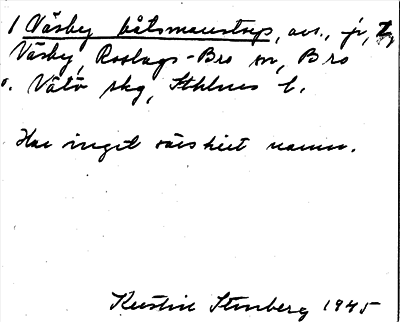 1 Väsby båtsmanstorp, avs., fr,
Väsby, Roslags-Bro sn, Bro
o. Vätö skg, Sthlms l.
Har inget särskilt namn.
Kerstin Stenberg 1945